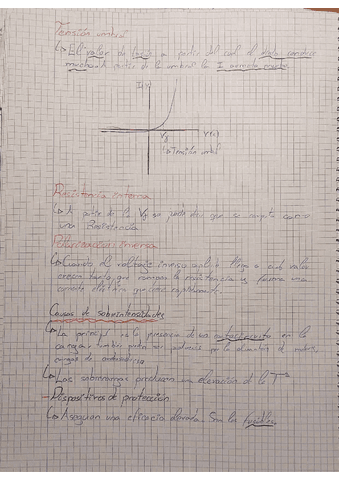 Tensión umbral
↳ El valor de tensión a partir del cual el diodo conduce
mucho. A partir de la umbral la I aumenta mucho
I(A)
Vγ
V(v)
↳ Tensión umbral
Resistencia interna
↳ A partir de la Vγ se puede decir que se comporta como
una Resistencia
Polarización inversa
↳ Cuando el voltaje inverso aplic. llega a un valor
crecen tanto que rompen la resistencia y forma una
corriente eléctrica que crece rápidamente.
Causas de sobreintensidades
↳ La principal es la presencia de un cortocircuito en la
carga, también pueden ser producidas por la alimentación de motores,
cargas de condensadores
↳ Las sobrecargas producen una elevación de la Tª
- Dispositivos de protección
↳ Aseguran una eficacia elevada. Son los fusibles